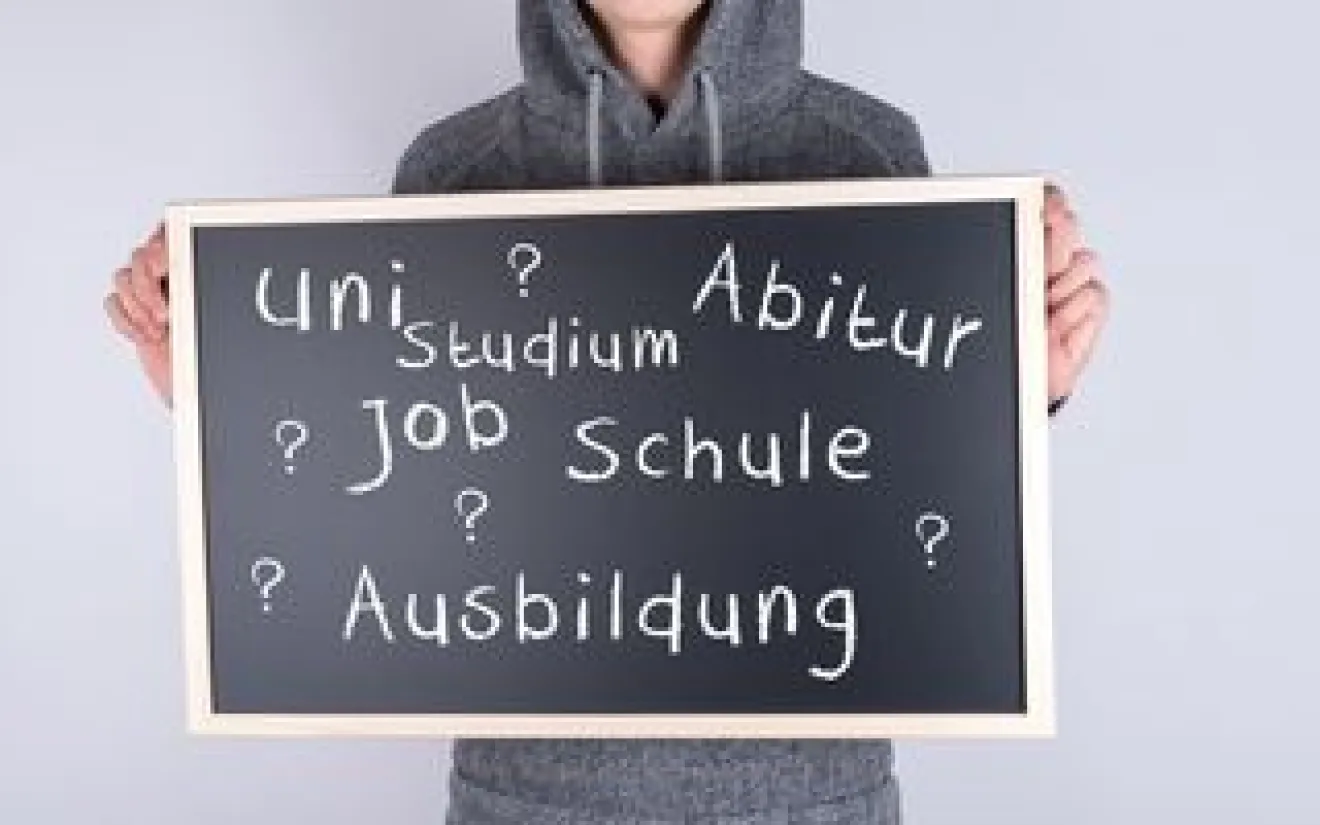 Uni ? Abitur
Studium
? Job Schule
? ?
? Ausbildung